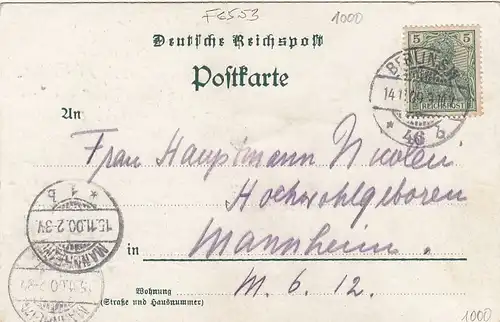 F6553
1000
Deutsche Reichspost
Postkarte
5
REICHSPOST
BERLIN S.W.
* 46 b
An
Frau Hauptmann Nicolai
Hochwohlgeboren
in Mannheim.
M. 6. 12.
Wohnung
(Straße und Hausnummer)
* 1 b
15.11.00.2-3V.
MANNHEIM
1000